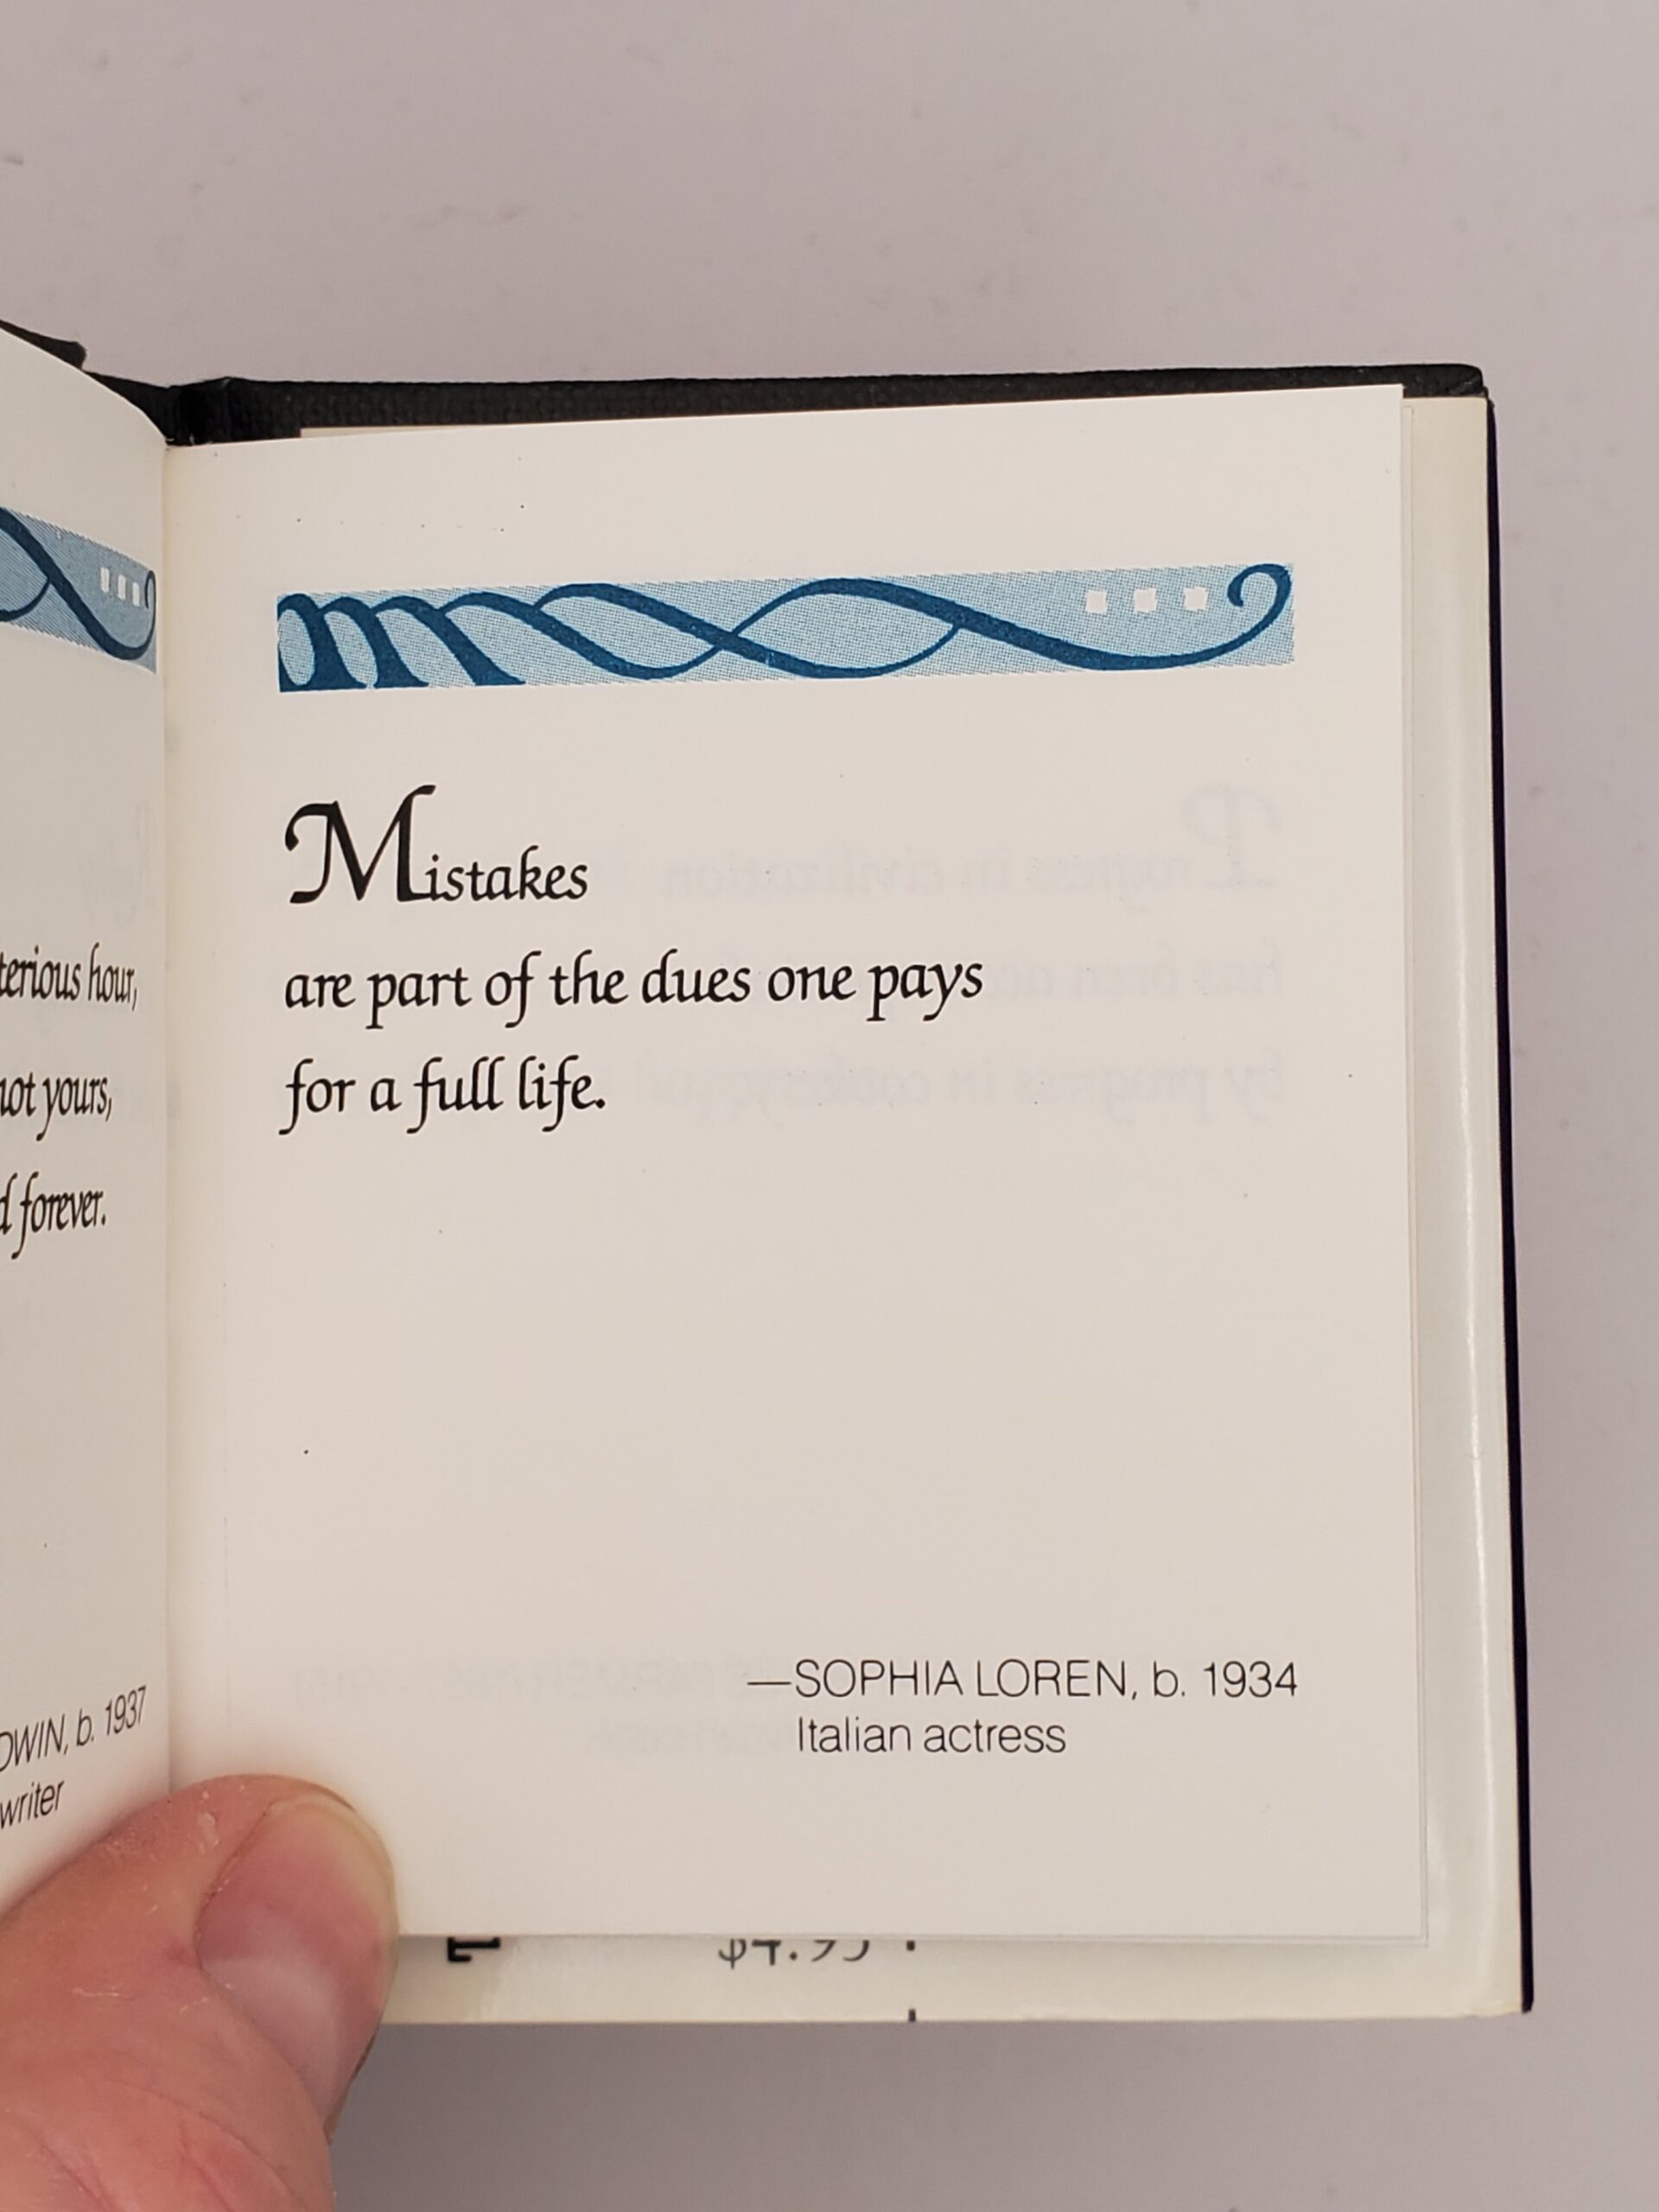 terious hour,
not yours,
d forever.
DWIN, b. 1937
writer
Mistakes
are part of the dues one pays
for a full life.
—SOPHIA LOREN, b. 1934
Italian actress
$4.95